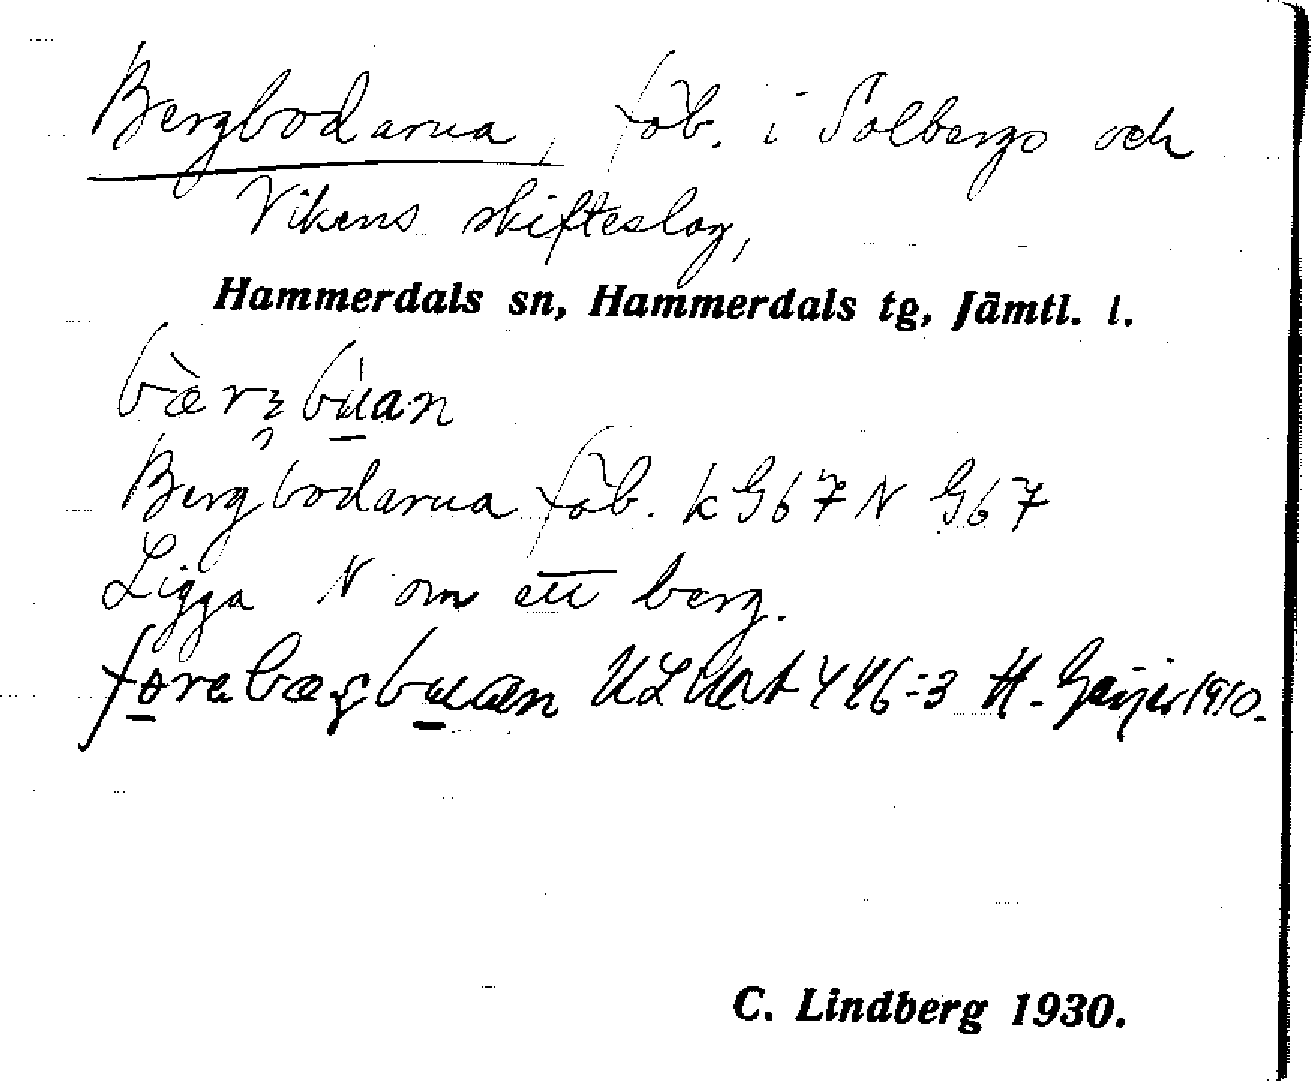 Bergbodarna, fäb. i Solbergs och
Vikens skifteslag,
Hammerdals sn, Hammerdals tg, Jämtl. l.
Bergbodarna fäb. k G67 N G67
Ligga N om ett berg.
ULMA 446:3 H. Geijer 1910.
C. Lindberg 1930.